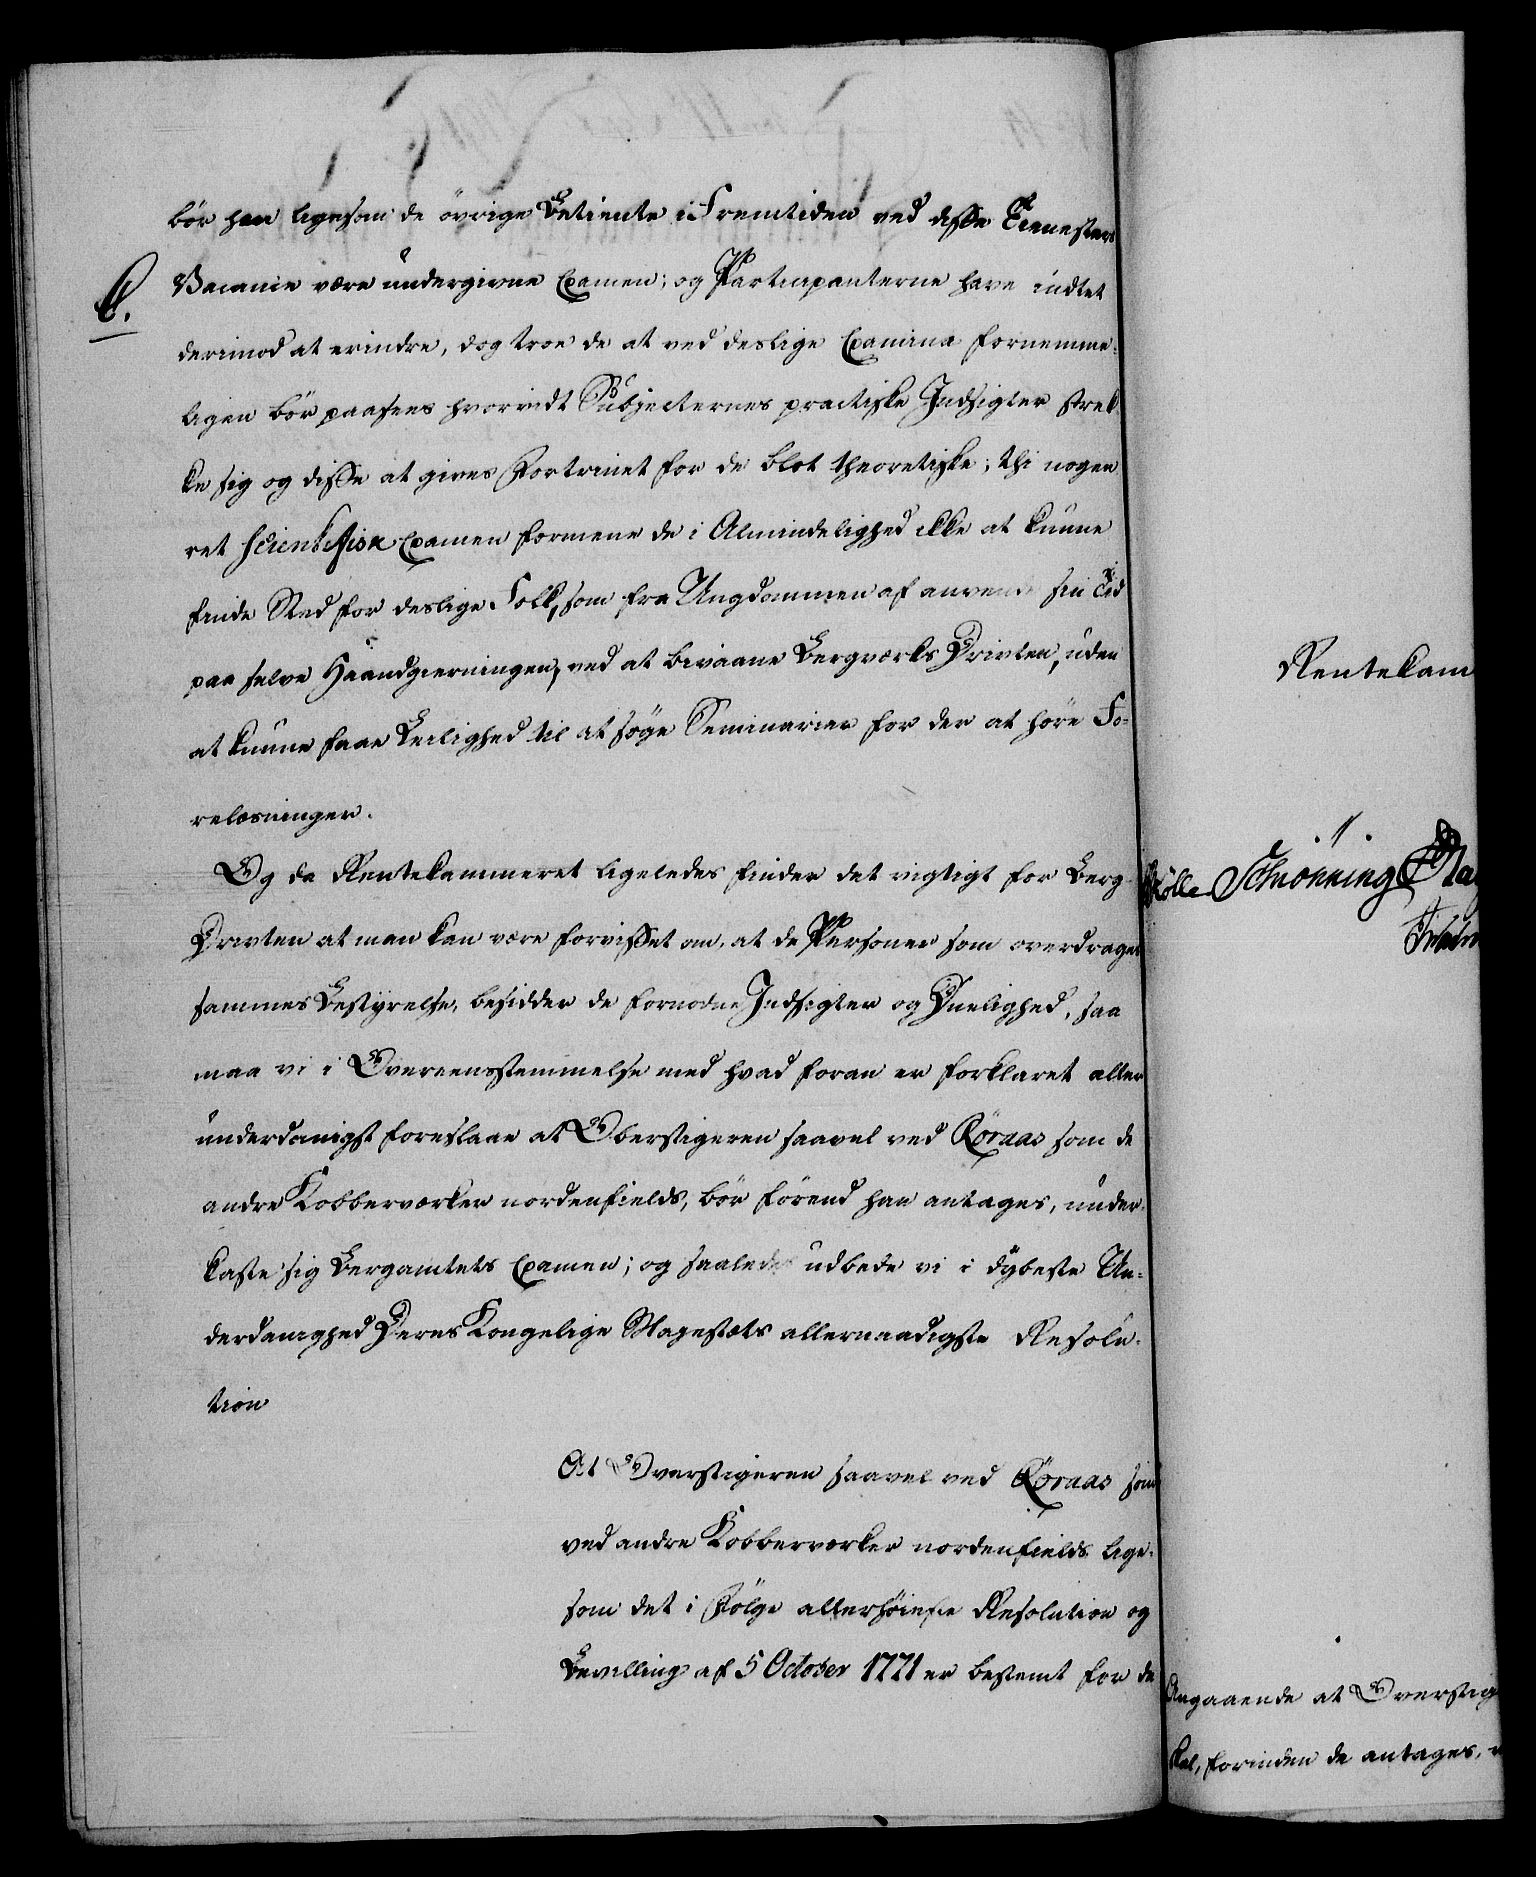 bör han ligesom de övrige Betiente i Fremtiden ved disse Tienesters
C.
Vacance være undergivne Examen; og Participanterne have indtet
derimod at erindre, dog troe de at ved deslige Examina fornemme-
ligen bör paasees hvorvidt Subjecternes practiske Indsigter stræk-
ke sig og disse at gives Fortrinet for de blot theoretiske; thi nogen
ret scientifisk Examen formene de i Almindelighed ikke at kunne
finde Sted for deslige Folk, som fra Ungdommen af anvende sin Tid
paa selve Haandgierningen, ved at bivaane Bergværks Drivten, uden
at kunne faae Leilighed til at søge Seminarier for der at höre Fo-
relæsninger.
Og da Rentekammeret ligeledes finder det vigtigt for Berg-
Drivten at man kan være forvisset om, at de Personer som overdrages
sammes Bestyrelse, besidder de fornødne Indsigter og Duelighed, saa
maa vi i Overeensstemmelse med hvad foran er forklaret aller
underdanigst foreslaae at Oberstigeren saavel ved Röraas som de
andre Kobberværker nordenfields, bör förend han antages, under-
kaste sig Bergamtets Examen; og saaledes udbede vi i dybeste Un-
derdanighed Deres Kongelige Majestæts allernaadigste Resolu-
tion
At Overstigeren saavel ved Röraas som
ved andre Kobberværker nordenfields lige-
som det i Fölge allerhöieste Resolution og
Bevilling af 5 October 1771 er bestemt for de
Rentekam
Schiönning
Angaaende at Overstig
kal, forinden de antages,